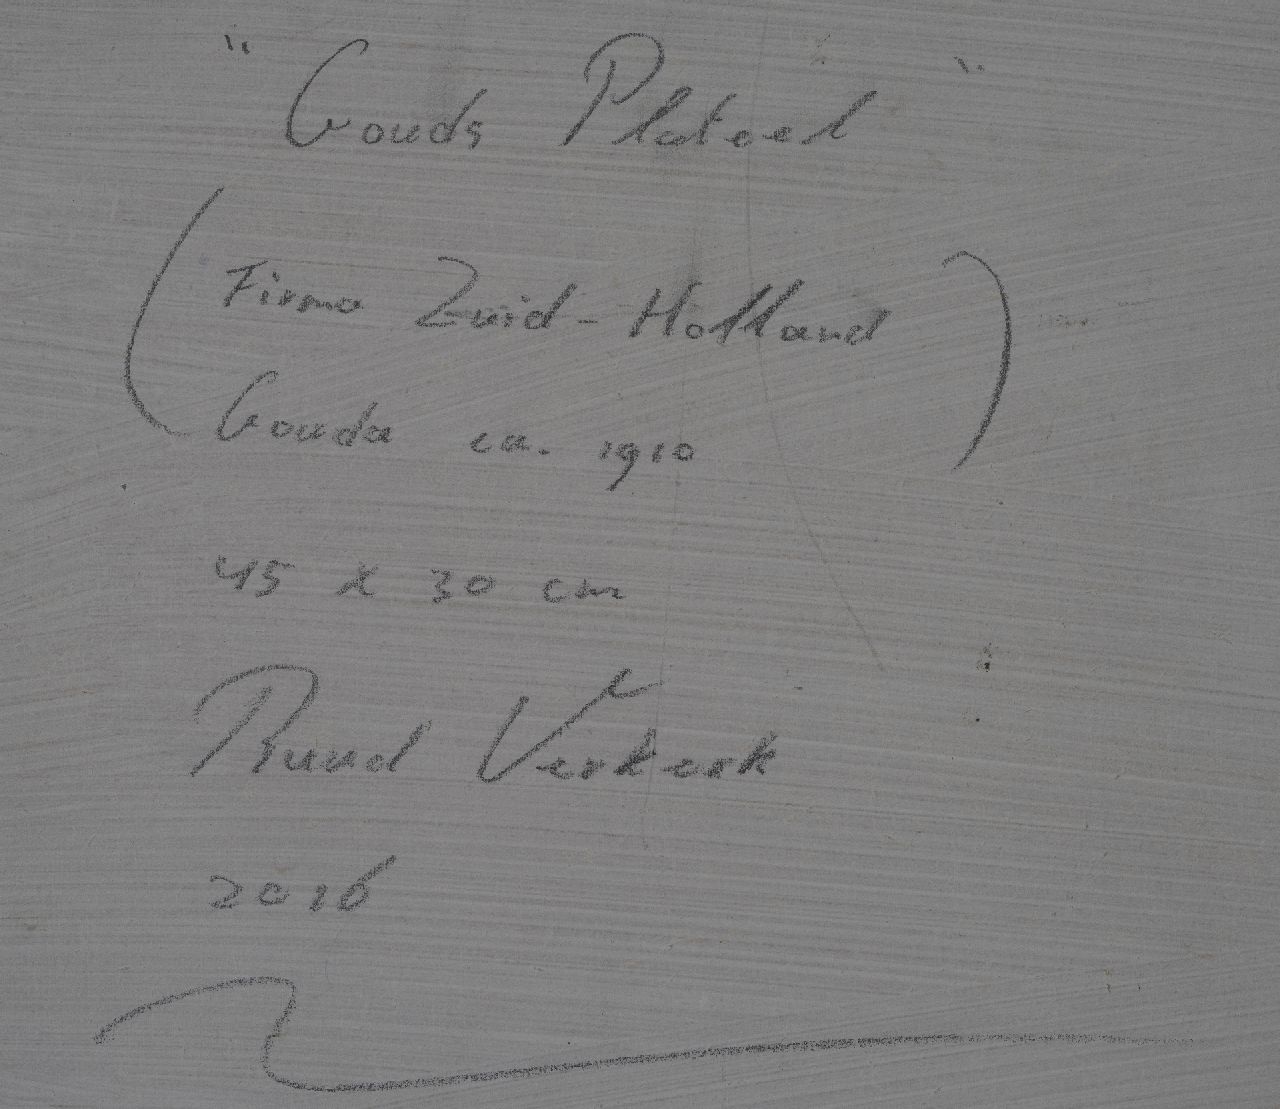 "Gouds Plateel"
(Firma Zuid-Holland
Gouda ca. 1910)
45 x 30 cm
Ruud Verkerk
2016